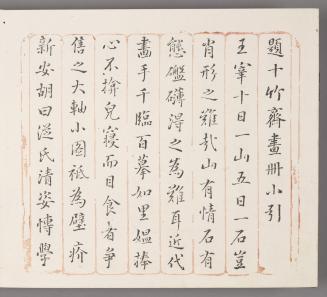 題十竹齋畫冊小引
王宰十日一山五日一石豈
肖形之難哉山有情石有
態盤礴得之為難耳近代
畫手千臨百摹如里媼捧
心不揄兒寢而目食者爭
售之大軸小圖祇為壁疥
新安胡曰從氏清姿博學